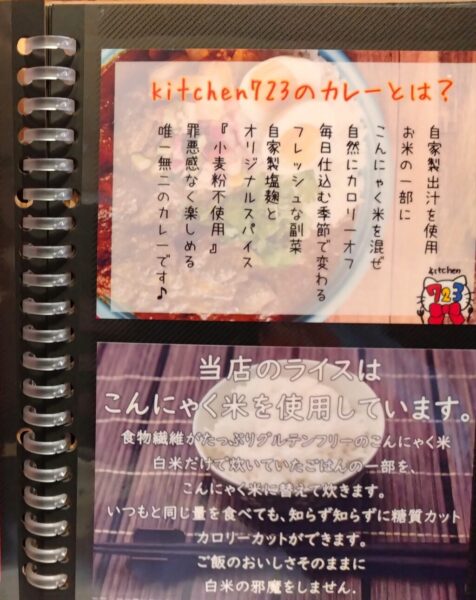 kitchen723のカレーとは？
自家製出汁を使用
お米の一部に
こんにゃく米を混ぜ
自然にカロリーオフ
毎日仕込む季節で変わる
フレッシュな副菜
自家製塩麹と
オリジナルスパイス
『小麦粉不使用』
罪悪感なく楽しめる
唯一無二のカレーです♪
kitchen
723
当店のライスは
こんにゃく米を使用しています。
食物繊維がたっぷりグルテンフリーのこんにゃく米
白米だけで炊いていたごはんの一部を、
こんにゃく米に替えて炊きます。
いつもと同じ量を食べても、知らず知らずに糖質カット
カロリーカットができます。
ご飯のおいしさそのままに
白米の邪魔をしません.